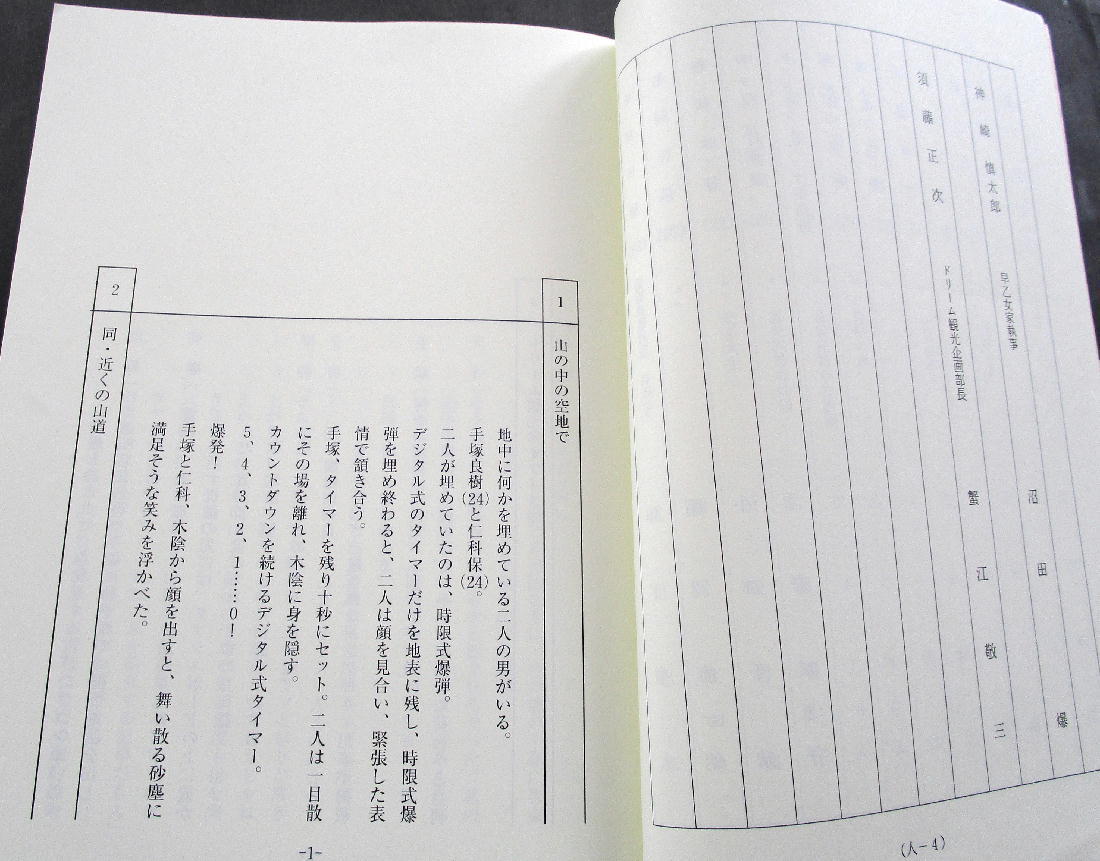 神崎慎太郎 早乙女家執事 沼田爆
須藤正次 ドリーム観光企画部長 蟹江敬三
(人－4)
1 山の中の空地で
地中に何かを埋めている二人の男がいる。
手塚良樹(24)と仁科保(24)。
二人が埋めていたのは、時限式爆弾。
デジタル式のタイマーだけを地表に残し、時限式爆
弾を埋め終わると、二人は顔を見合い、緊張した表
情で頷き合う。
手塚、タイマーを残り十秒にセット。二人は一目散
にその場を離れ、木陰に身を隠す。
カウントダウンを続けるデジタル式タイマー。
5、4、3、2、1……0！
爆発！
手塚と仁科、木陰から顔を出すと、舞い散る砂塵に
満足そうな笑みを浮かべた。
2 同・近くの山道
-1-